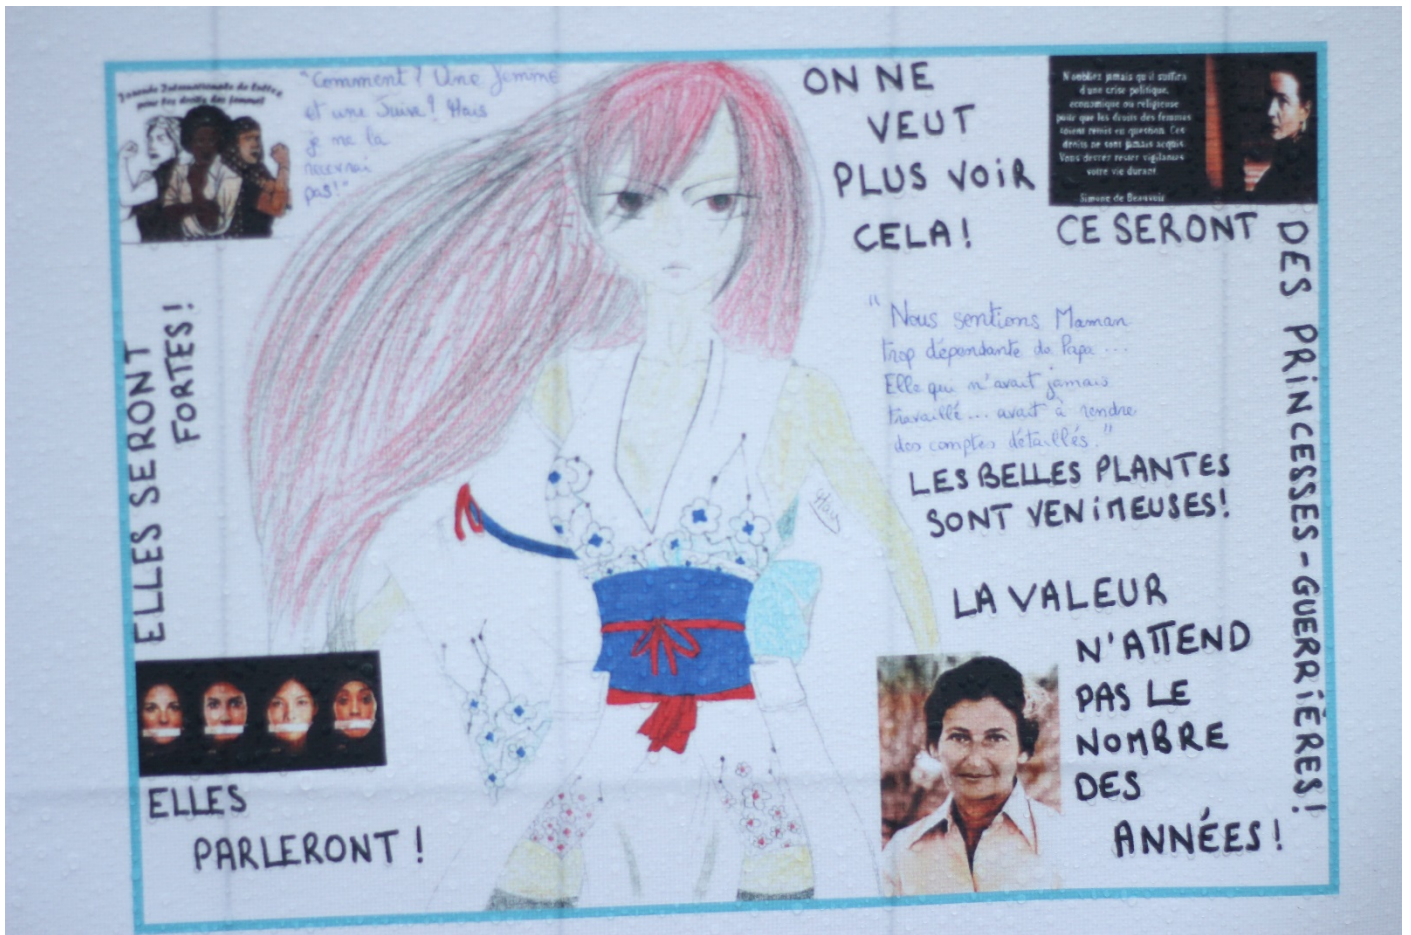 Journée Internationale de luttes
pour les droits des femmes
"Comment? Une femme
et une Juive? Mais
je ne la
recevrai
pas!"
ON NE
VEUT
PLUS VOIR
CELA!
N'oubliez jamais qu'il suffira
d'une crise politique,
économique ou religieuse
pour que les droits des femmes
soient remis en question. Ces
droits ne sont jamais acquis.
Vous devrez rester vigilantes
votre vie durant.
Simone de Beauvoir
CE SERONT
DES PRINCESSES-GUERRIÈRES!
ELLES SERONT
FORTES!
"Nous sentions Maman
trop dépendante de Papa...
Elle qui n'avait jamais
travaillé... avait à rendre
des comptes détaillés."
LES BELLES PLANTES
SONT VENIMEUSES!
LA VALEUR
N'ATTEND
PAS LE
NOMBRE
DES
ANNÉES!
ELLES
PARLERONT!